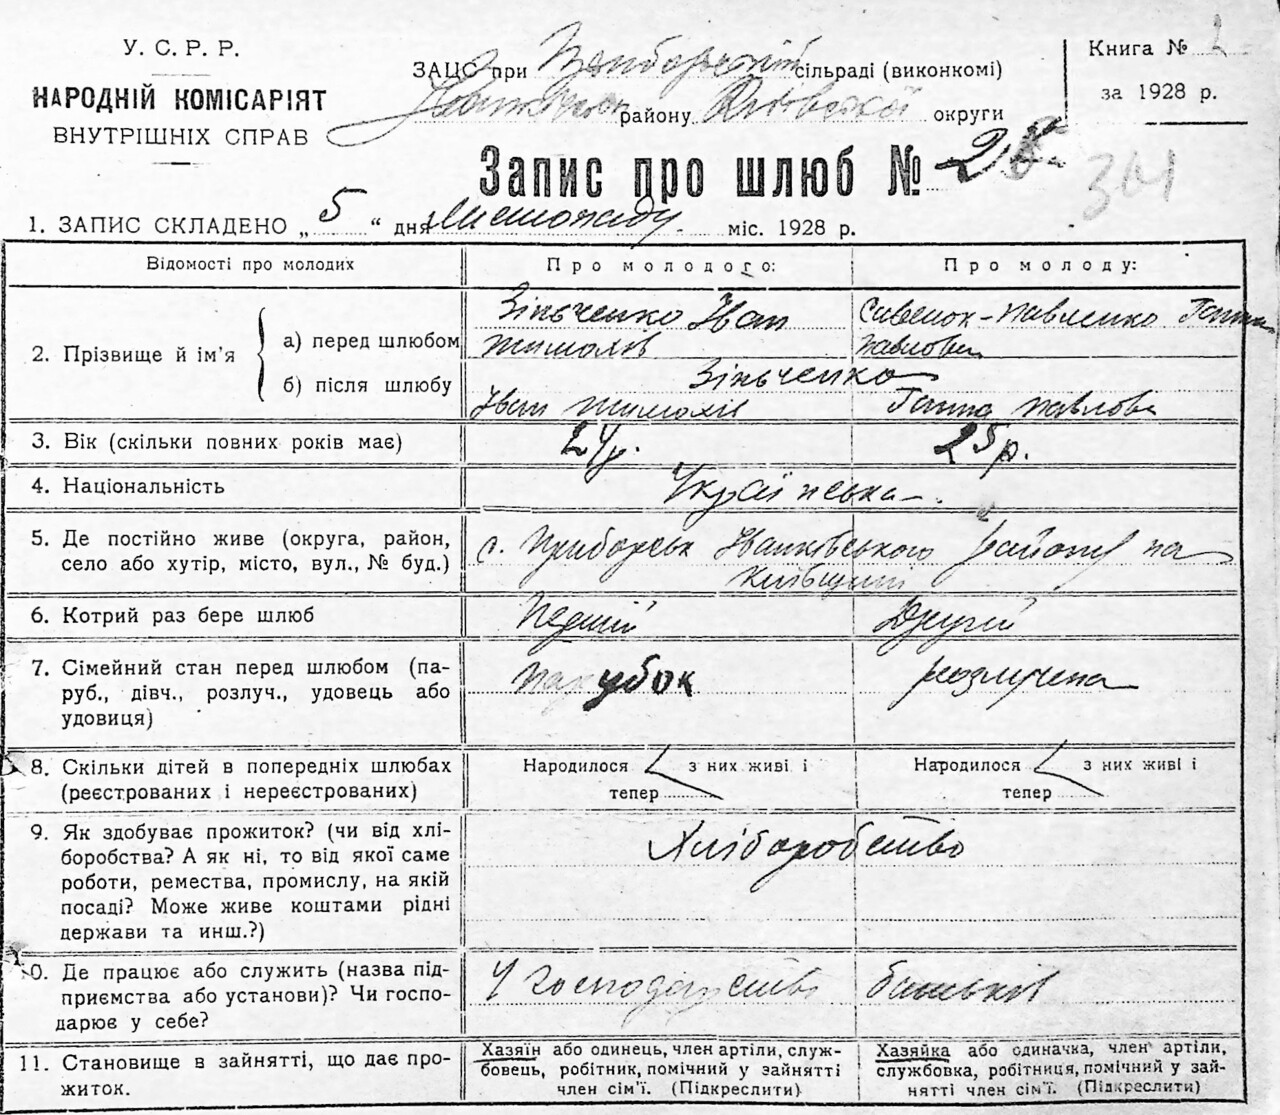 У. С. Р. Р.
НАРОДНІЙ КОМІСАРІЯТ
ВНУТРІШНІХ СПРАВ
ЗАЦС при сільраді (виконкомі)
району Київської округи
Книга № 1
за 1928 р.
Запис про шлюб № 28
301
1. ЗАПИС СКЛАДЕНО „ 5 “ дня Листопаду міс. 1928 р.
Відомості про молодих
Про молодого:
Про молоду:
2. Прізвище й ім'я
а) перед шлюбом
Зінченко Іван
Тимохів
Савенок-Павленко Ганна
Павлова
б) після шлюбу
Зіньченко
Іван Тимохів
Ганна Павлова
3. Вік (скільки повних років має)
24 р.
25 р.
4. Національність
Українська
5. Де постійно живе (округа, район,
село або хутір, місто, вул., № буд.)
с. Приборськ Іванківського району на
Київщині
6. Котрий раз бере шлюб
Перший
Другий
7. Сімейний стан перед шлюбом (па-
руб., дівч., розлуч., удовець або
удовиця)
парубок
розлучена
8. Скільки дітей в попередніх шлюбах
(реєстрованих і нереєстрованих)
Народилося з них живі і
тепер
Народилося з них живі і
тепер
9. Як здобуває прожиток? (чи від хлі-
боробства? А як ні, то від якої саме
роботи, ремества, промислу, на якій
посаді? Може живе коштами рідні
держави та инш.?)
Хліборобство
0. Де працює або служить (назва під-
приємства або установи)? Чи госпо-
дарює у себе?
У господарстві батьків
11. Становище в зайнятті, що дає про-
житок.
Хазяїн або одинець, член артіли, служ-
бовець, робітник, помічний у зайнятті
член сім'ї. (Підкреслити)
Хазяйка або одиначка, член артіли,
службовка, робітниця, помічний у зай-
нятті член сім'ї. (Підкреслити)